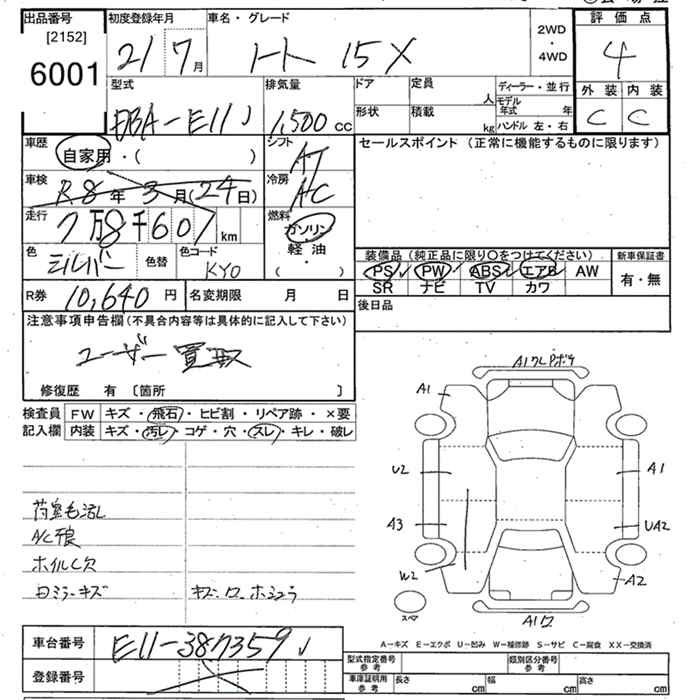 出品番号
[2152]
6001
初度登録年月
21 7月
車名・グレード
ノート 15X
2WD
・
4WD
評価点
4
外装 内装
C C
型式
DBA-E11
排気量
1,500cc
ドア
形状
定員
人
積載
kg
ディーラー・並行
モデル年式 年
ハンドル 左・右
車歴
自家用・( )
シフト
AT
車検
R8年3月(24日)
冷房
AC
走行
7万8千607km
燃料
ガソリン
軽油
( )
色
シルバー
色替
色コード
KY0
セールスポイント(正常に機能するものに限ります)
装備品(純正品に限り〇をつけてください)
新車保証書
PS PW ABS エアB AW
SR ナビ TV カワ
有・無
R券 10,640円
名変期限 月 日
後日品
注意事項申告欄(不具合内容等は具体的に記入して下さい)
ユーザー買取
修復歴 有 〔箇所 〕
検査員
記入欄
FW キズ・飛石・ヒビ割・リペア跡・×要
内装 キズ・汚レ・コゲ・穴・スレ・キレ・破レ
荷室も汚し
A/C不良
ホイルC欠
ミラーキズ
キズ
A1
A1
U2
A1
A3
UA2
W2
A2
スペア
A1
車台番号 E11-387359
登録番号
A−キズ E−エクボ U−凹み W−補修跡 S−サビ C−腐食 XX−交換済
型式指定番号
参考
類別区分番号
参考
車庫証明用
参考
長さ cm
幅 cm
高さ cm